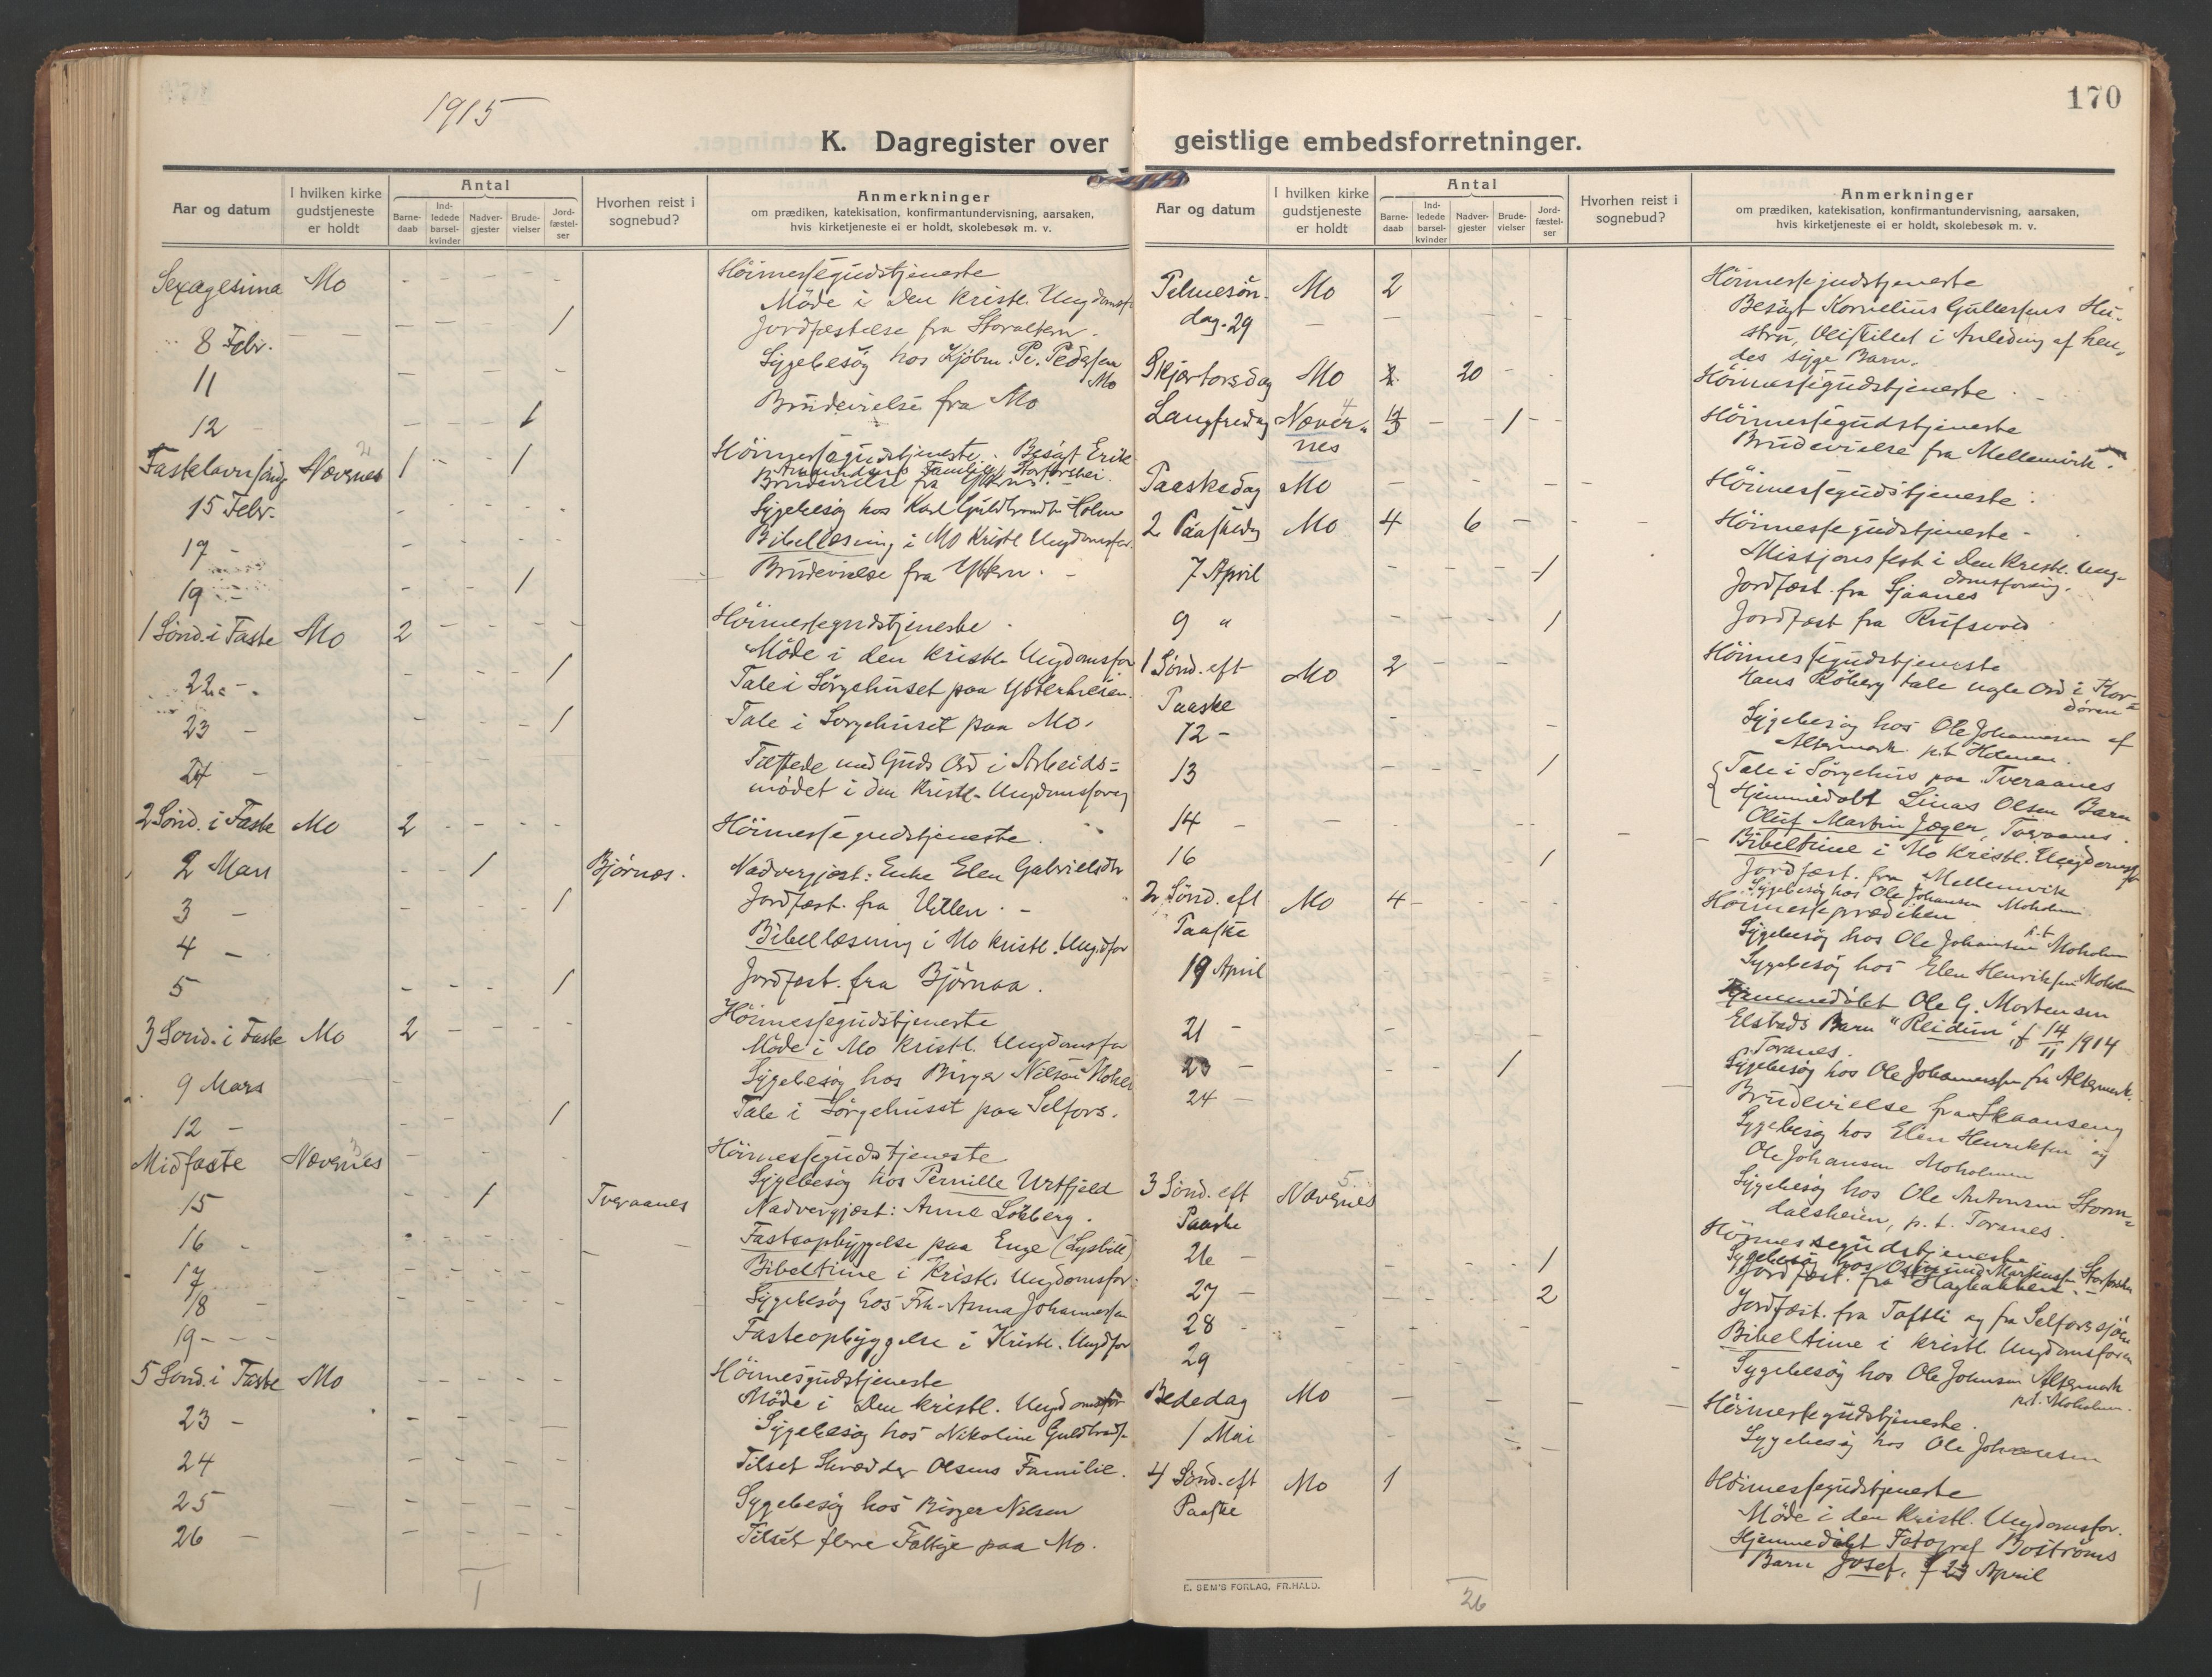 1915
170
K. Dagregister over geistlige embedsforretninger.
Aar og datum
I hvilken kirke gudstjeneste er holdt
Antal
Barne-daab
Ind-ledede barsel-kvinder
Nadver-gjester
Brude-vielser
Jord-fæstel-ser
Hvorhen reist i sognebud?
Anmerkninger
om prædiken, katekisation, konfirmantundervisning, aarsaken, hvis kirketjeneste ei er holdt, skolebesøk m. v.
Sexagesima Mo - - - - - Höimessegudstjeneste
Möde i Den Kristl. Ungdomsf
8 Febr. - - - - 1 Jordfæstelse fra Storaltern.
11 - - - - - Sygebesög hos Kjöbm. P. Pedersen Mo
12 - - - 1 Brudevielse fra Mo
Fastelavnsönd Nævernes 2 1 - - 1 Höimessegudstjeneste. Besögt Erik
Amundsens Familie, Storforshei.
Brudevielse fra Yttern.
15 Febr. - - - - Sygebesög hos Karl Guldbrandt. Holme
17 - Bibellæsning i Mo Kristl Ungdomsfor.
19 - - - 1 Brudevielse fra Yttern. -
1 Sönd. i Faste Mo 2 - - - - Höimessegudstjeneste.
Möde i den Kristl. Ungdomsfor
22 - - - - 1 Tale i Sörgehuset paa Ytterheien.
23 - - - - 1 Tale i Sorgehuset paa Mo.
24 - Tilstede med Guds Ord i Arbeids-
mödet i den Kristl. Ungdomsforeg
2 Sönd. i Faste Mo 2 - - - - Höimessegudstjeneste.
2 Mars - - 1 Bjørnæs. Nadvergjæst: Enke Elen Gabrielsdtr
3 - - - - 1 Jordfæst. fra -
4 - Bibellæsning i Mo Kristl. Ungdfor
5 - - - - 1 Jordfæst. fra Björnaa.
3 Sönd. i Faste Mo 2 - - - - Höimessegudstjeneste
Möde i Mo Kristl. Ungdomsfor
9 Mars Sygebesög hos Birger Nilsen Mohol
12 - - - - 1 Tale i Sörgehuset paa Selfors.
Midfaste Nævernes 3 - - - - Höimessegudstjeneste
Sygebesög hos Pernille Urtfjeld
15 - - 1 Tveraanes Nadvergjæst: Anna
16 - Fasteopbyggelse paa Enge (Lysbill)
17 Bibeltime i Kristl. Ungdomsfor.
18 - Sygebesög hos Frk. Anna Johannessen
19 - - - Fasteopbyggelse i Kristl. Ungdfor
5 Sönd. i Faste Mo - - - - - Höimesgudstjeneste
Möde i Den Kristl. Ungdomsfor
23 - Sygebesög hos Nikoline Guldbrads.
24 Tilset Skrædder Olsens Familie.
25 Sygebesög hos Birger Nilsen
26 - Tilset flere Fattige paa Mo.
1
Aar og datum
I hvilken kirke gudstjeneste er holdt
Antal
Barne-daab
Ind-ledede barsel-kvinder
Nadver-gjester
Brude-vielser
Jord-fæstel-ser
Hvorhen reist i sognebud?
Anmerkninger
om prædiken, katekisation, konfirmantundervisning, aarsaken, hvis kirketjeneste ei er holdt, skolebesøk m. v.
Palmesön- Mo 2 Höimessegudstjeneste
dag. 29 Besögt Kornelius Gullesens Hu-
stru, i Anledning af hen-
des syge Barn.
Skjærtorsdag Mo 20 - - Höimessegudstjeneste.
Langfredag Næver- 4 - 1 - - Höimessegudstjeneste
nes Brudevielse fra Mellemvik.
Paaskedag Mo - - - - - Höimessegudstjeneste.
2 Paaskedag Mo 4 6 - - Höimessegudstjeneste.
Missjonsfest i Den Kristl. Ung-
domsforening.
7 April - - - 1 Jordfæst. fra Sjaanes
9 " - - - 1 Jordfæst fra Rufsvold
1 Sönd. eft Mo 2 - - Höimessegudstjeneste
Paaske Hans Röberg tale nogle Ord i Kor-
dören
12 - Sygebesög hos Ole Johannesen af
Altermark p.t. Holmen.
13 - - - 1 Tale i Sörgehus paa Tveraanes
Hjemmedöbt Linas Olsen Barn
Oluf Martin Jæger, Tveraanes.
14 - Bibeltime i Mo Kristl. Ungdomsfor
16 1 Jordfæst. fra Mellemvik
Sygebesög hos Ole Johansen Moholmen
2 Sönd. eft Mo 4 - Höimesseprædiken
Paaske Sygebesög hos Ole Johansen p.t. Moholm
19 April Sygebesög hos Elen Henriksen Moholm
Hjemmedöbt Ole G. Mortensen
Elstads Barn "Reidun", f. 14/11 1914
Toranes.
21 - Sygebesög hos Ole Johannessen fra Altermark.
23 - - - 1 Brudevielse fra Skaanseng
24 - Sygebesög hos Elen Henriksen og
Ole Johansen Moholmen
Sygebesög hos Ole Antonsen Storm-
dalsheien, p.t. Toranes.
3 Sönd. eft Nævernes 5. Höimessegudstjeneste
Paaske Sygebesög hos Martinsen Storforshei
26 - 1 Jordfæst. fra Hagbakken. -
27 - 2 Jordfæst. fra Toftli og fra Selforssjöen
28 - Bibeltime i Kristl Ungdomsforen
29 Sygebesög hos Ole Johnsen Altermark
p.t. Moholmen.
Bededag Mo - Höimessegudstjeneste.
1 Mai Sygebesög hos Ole Johansen
4 Sönd. eft Mo 1 Höimessegudstjeneste
Paaske Möde i den Kristl. Ungdomsfor.
Hjemmedöbt Fotograf Boströms
Barn Josef, f 23 April
E. SEM'S FORLAG, FR.HALD.
26